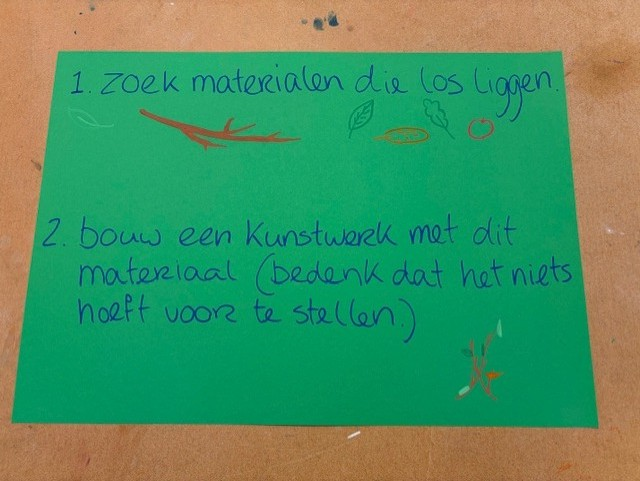 1. Zoek materialen die los liggen.
2. bouw een kunstwerk met dit
materiaal (bedenk dat het niets
hoeft voor te stellen.)